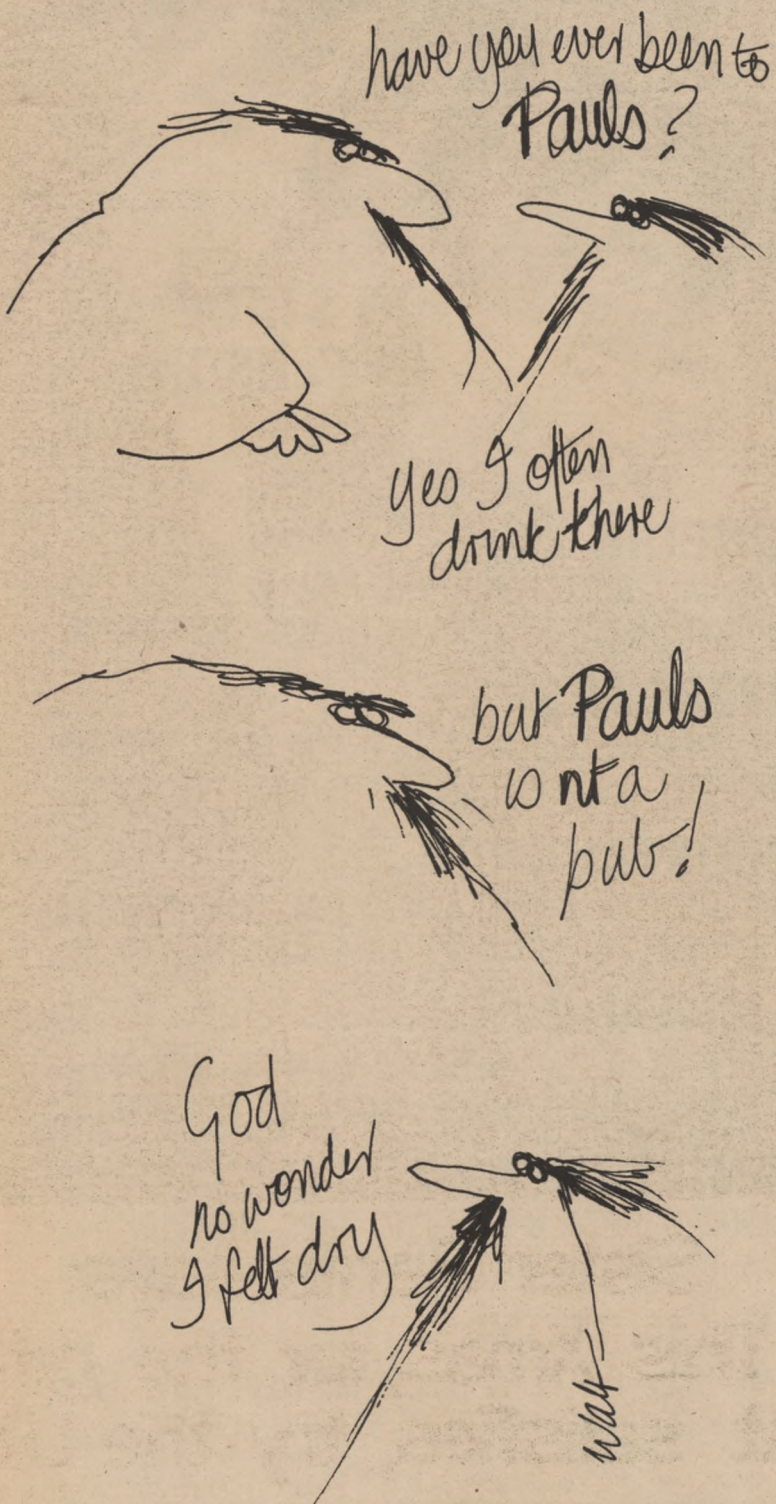 have you ever been to
Pauls?
yes I often
drink there
but Pauls
is nt a
pub!
God
no wonder
I felt dry
Walt